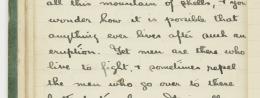 all this mountain of shells, & you
wonder how it is possible that
anything ever lives after such an
eruption. Yet men are there who
live to fight, & sometimes repel
the men who go over to these